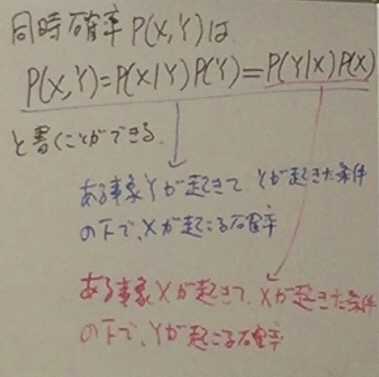 同時確率P(X,Y)は
P(X,Y)=P(X|Y)P(Y)=P(Y|X)P(X)
と書くことができる.
ある事象Yが起きて Yが起きた条件
の下で、Xが起こる確率
ある事象Xが起きて、Xが起きた条件
の下で、Yが起こる確率